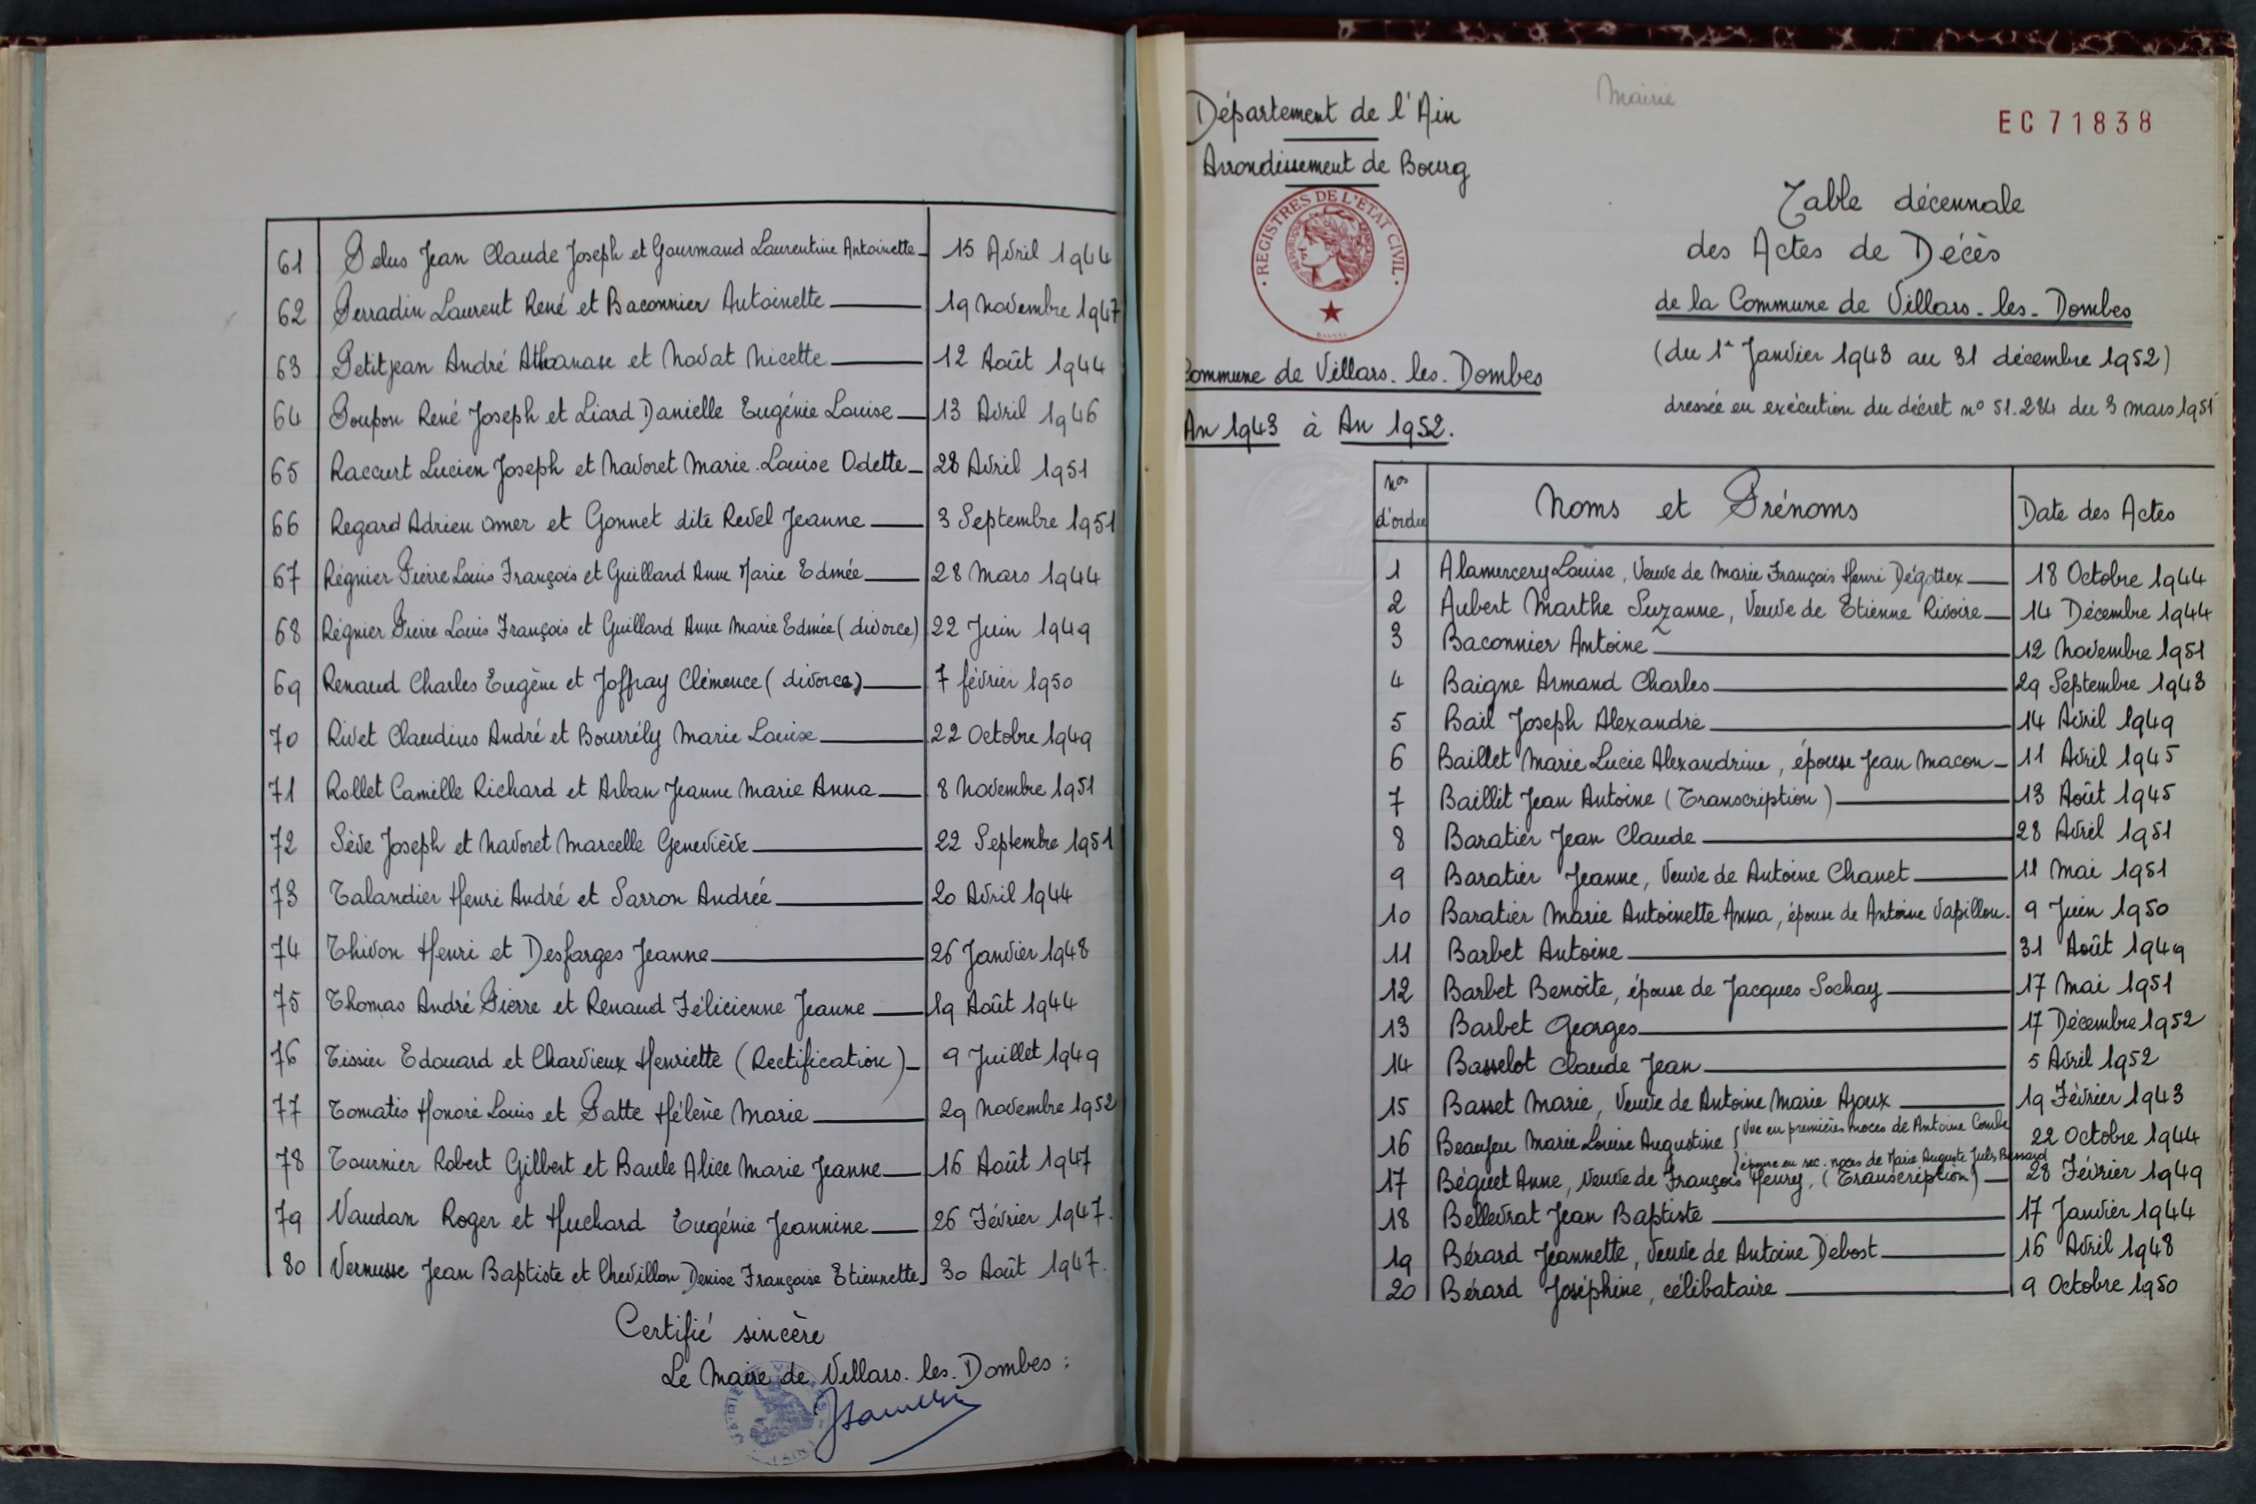 61 Pelus Jean Claude Joseph et Gourmand Laurentine Antoinette 15 Avril 1944
62 Perradin Laurent René et Baconnier Antoinette 19 Novembre 1947
63 Petitjean André Athanase et Novat Nicette 12 Août 1944
64 Poupon René Joseph et Liard Danielle Eugénie Louise 13 Avril 1946
65 Raccurt Lucien Joseph et Navoret Marie-Louise Odette 28 Avril 1951
66 Regard Adrien Omer et Gonnet dite Revel Jeanne 3 Septembre 1951
67 Régnier Pierre Louis François et Guillard Anne Marie Edmée 28 Mars 1944
68 Régnier Pierre Louis François et Guillard Anne Marie Edmée (divorce) 22 Juin 1949
69 Renaud Charles Eugène et Joffray Clémence (divorce) 7 février 1950
70 Rivet Claudius André et Bourrély Marie Louise 22 Octobre 1949
71 Rollet Camille Richard et Arban Jeanne Marie Anna 8 Novembre 1951
72 Sève Joseph et Navoret Marcelle Geneviève 22 Septembre 1951
73 Talandier Henri André et Sarron Andrée 20 Avril 1944
74 Thivon Henri et Desfarges Jeanne 26 Janvier 1948
75 Thomas André Pierre et Renaud Félicienne Jeanne 19 Août 1944
76 Tissier Edouard et Charvieux Henriette (Rectification) 9 Juillet 1949
77 Tomatis Honoré Louis et Patte Hélène Marie 29 Novembre 1952
78 Tournier Robert Gilbert et Baule Alice Marie Jeanne 16 Août 1947
79 Vaudan Roger et Huchard Eugénie Jeannine 26 Février 1947.
80 Vernusse Jean Baptiste et Chevillon Denise Françoise Etiennette 30 Août 1947.
Certifié sincère
Le Maire de Villars-les-Dombes :
Mairie
EC 71838
Département de l'Ain
Arrondissement de Bourg
REGISTRES DE L'ÉTAT CIVIL
Commune de Villars-les-Dombes
An 1943 à An 1952.
Table décennale
des Actes de Décès
de la Commune de Villars-les-Dombes
(du 1er Janvier 1943 au 31 décembre 1952)
dressée en exécution du décret n° 51.284 du 3 mars 1951
nos d'ordre Noms et Prénoms Date des Actes
1 Alamercery Louise, Veuve de Marie François Henri Dégottex 18 Octobre 1944
2 Aubert Marthe Suzanne, Veuve de Etienne Rivoire 14 Décembre 1944
3 Baconnier Antoine 12 Novembre 1951
4 Baigne Armand Charles 29 Septembre 1943
5 Bail Joseph Alexandre 14 Avril 1949
6 Baillet Marie Lucie Alexandrine, épouse Jean Macon 11 Avril 1945
7 Baillit Jean Antoine (Transcription) 13 Août 1945
8 Baratier Jean Claude 28 Avril 1951
9 Baratier Jeanne, Veuve de Antoine Chanet 11 Mai 1951
10 Baratier Marie Antoinette Anna, épouse de Antoine Vapillon. 9 Juin 1950
11 Barbet Antoine 31 Août 1949
12 Barbet Benoîte, épouse de Jacques Sochay 17 Mai 1951
13 Barbet Georges 17 Décembre 1952
14 Basselot Claude Jean 5 Avril 1952
15 Basset Marie, Veuve de Antoine Marie Ajoux 19 Février 1943
16 Beaujeu Marie Louise Augustine { Vve en premières noces de Antoine Combe 22 Octobre 1944
épouse en sec. noces de Marie Auguste Jules Bernard
17 Béguet Anne, Veuve de François Heury, (Transcription) 28 Février 1949
18 Bellevrat Jean Baptiste 17 Janvier 1944
19 Bérard Jeannette, Veuve de Antoine Debost 16 Avril 1948
20 Bérard Joséphine, célibataire 9 Octobre 1950